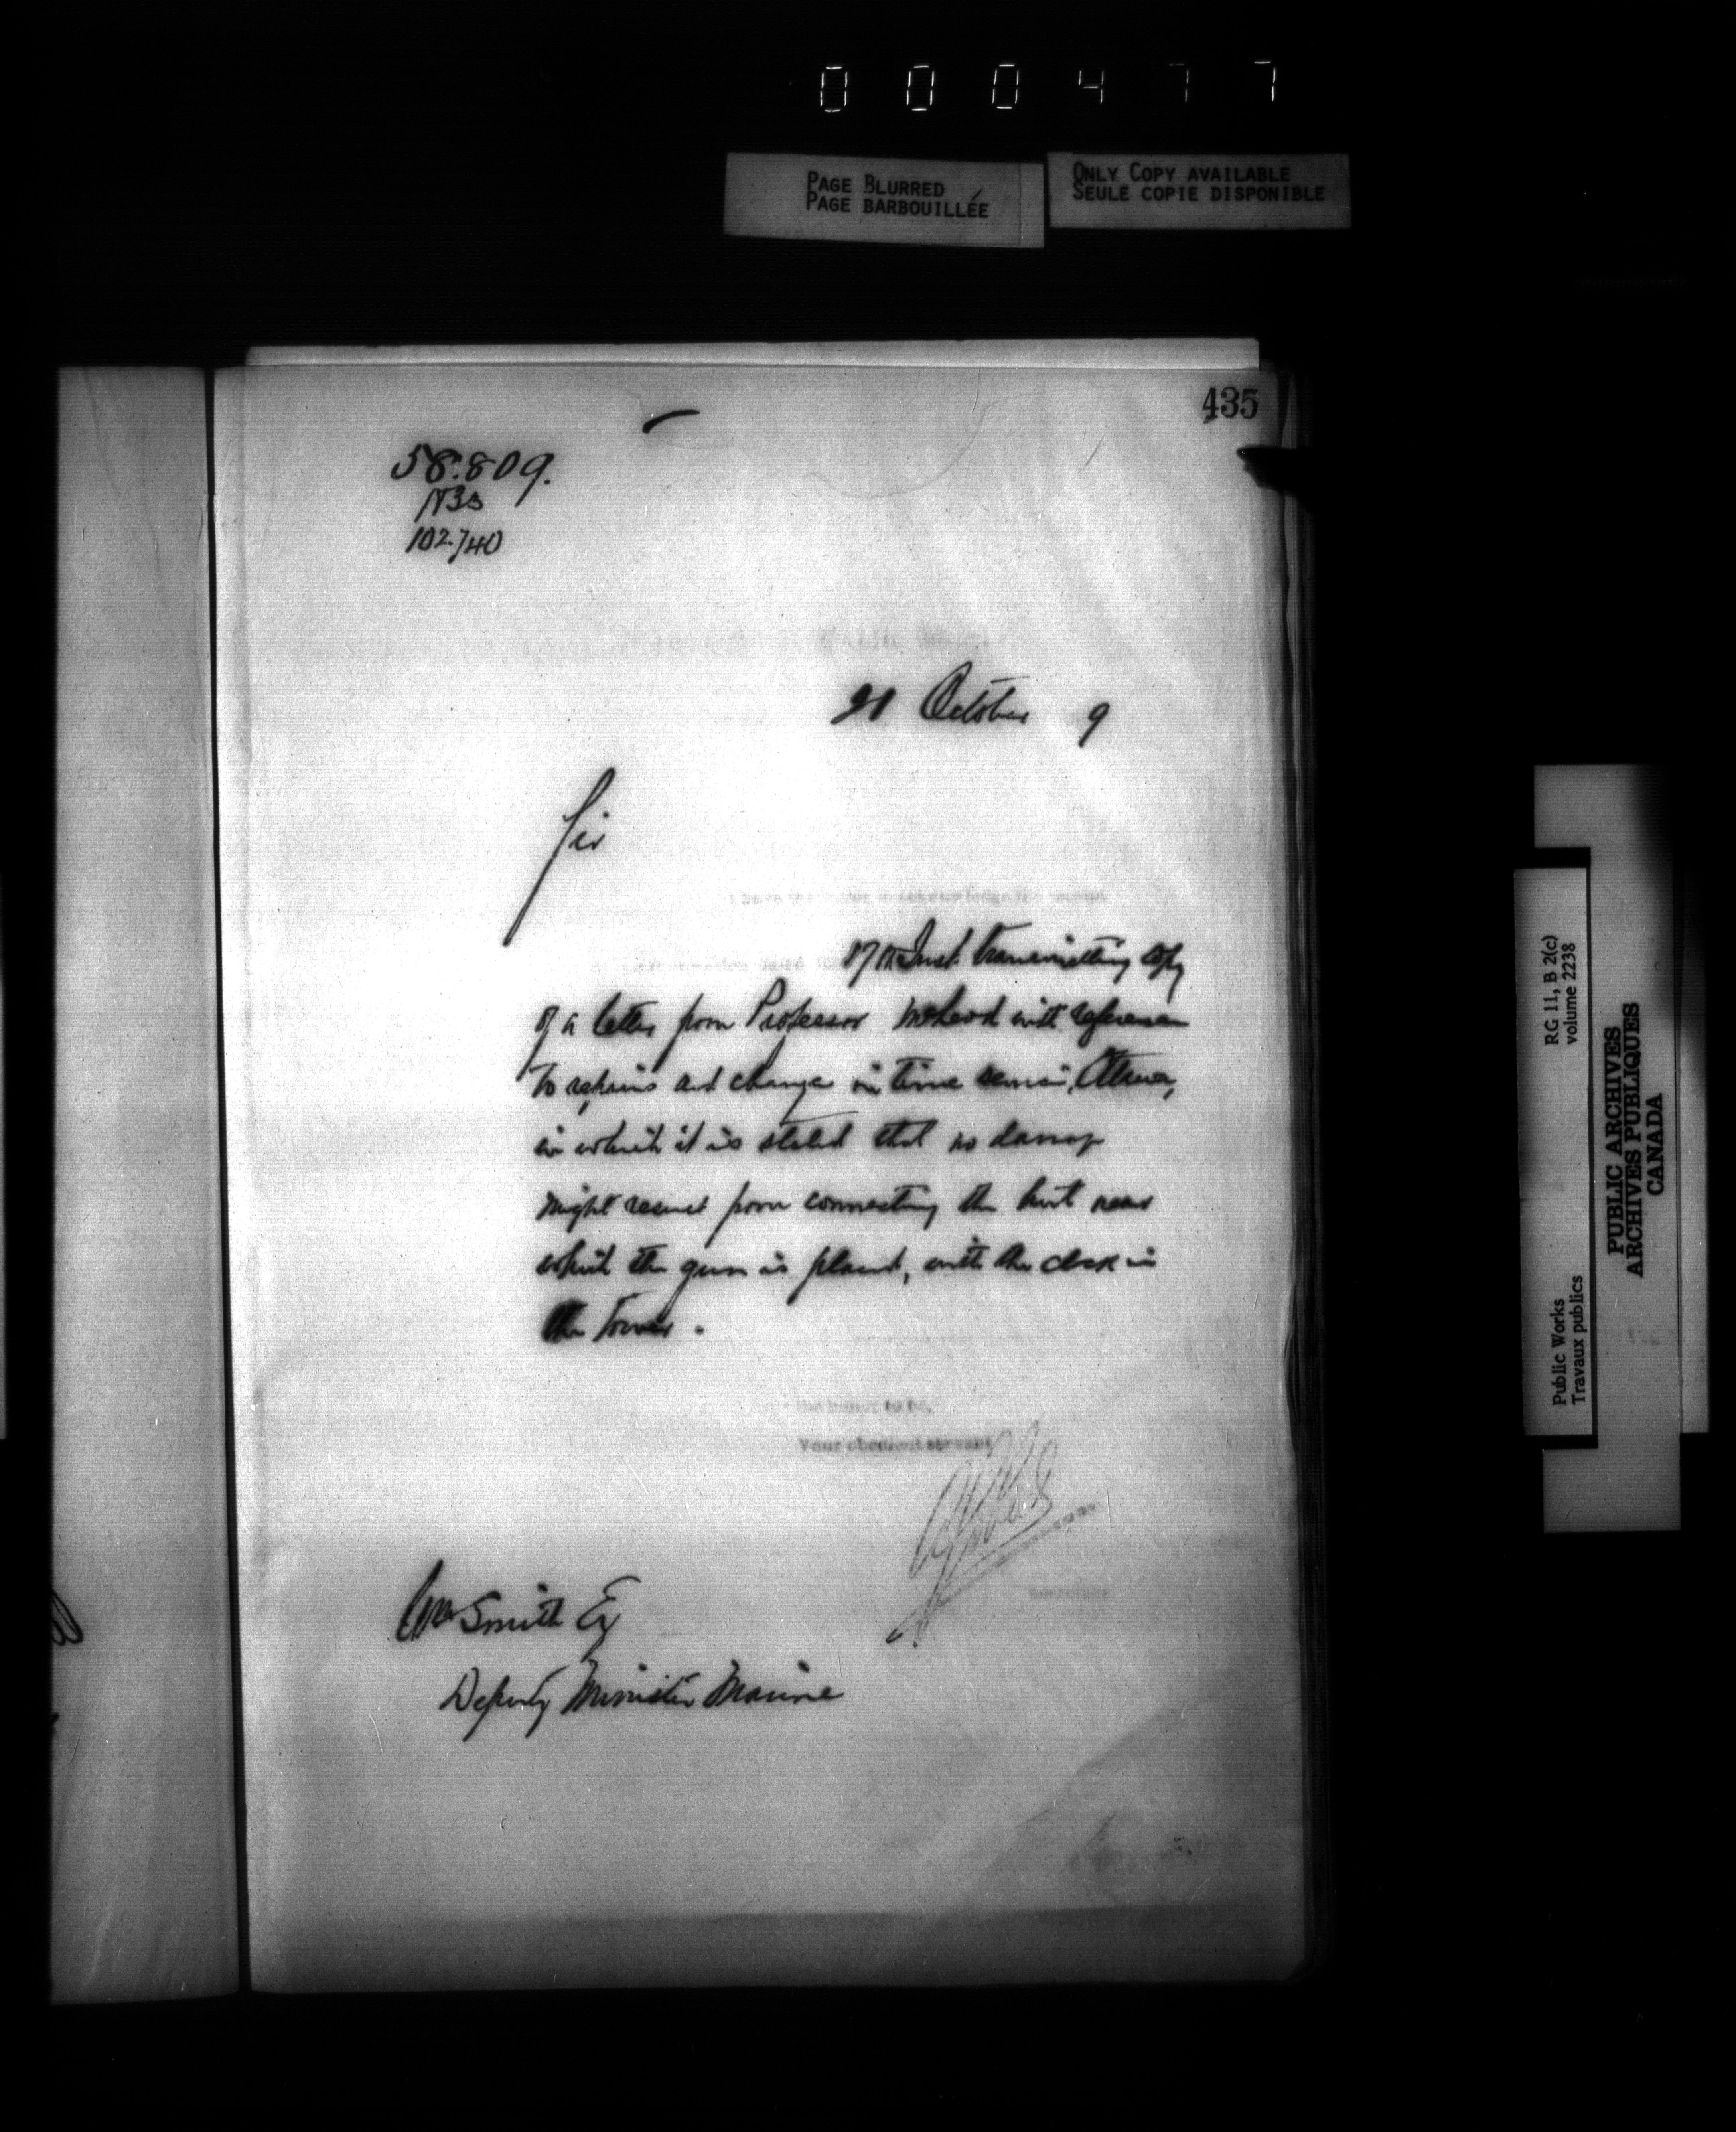 000477
PAGE BLURRED
PAGE BARBOUILLÉE
ONLY COPY AVAILABLE
SEULE COPIE DISPONIBLE
435
58.809.
102740
21 October 9
Sir
I have the honor to acknowledge the receipt
17th Inst. transmitting copy
of a letter from Professor McLeod with reference
to repairs and change in time service, Ottawa,
in which it is stated that no damage
might result from connecting the hut near
which the gun is placed, with the clock in
the Tower.
the honor to be,
Your obedient servant
Secretary
Wm Smith Esq
Deputy Minister Marine
RG 11, B 2(c)
volume 2238
Public Works
Travaux publics
PUBLIC ARCHIVES
ARCHIVES PUBLIQUES
CANADA